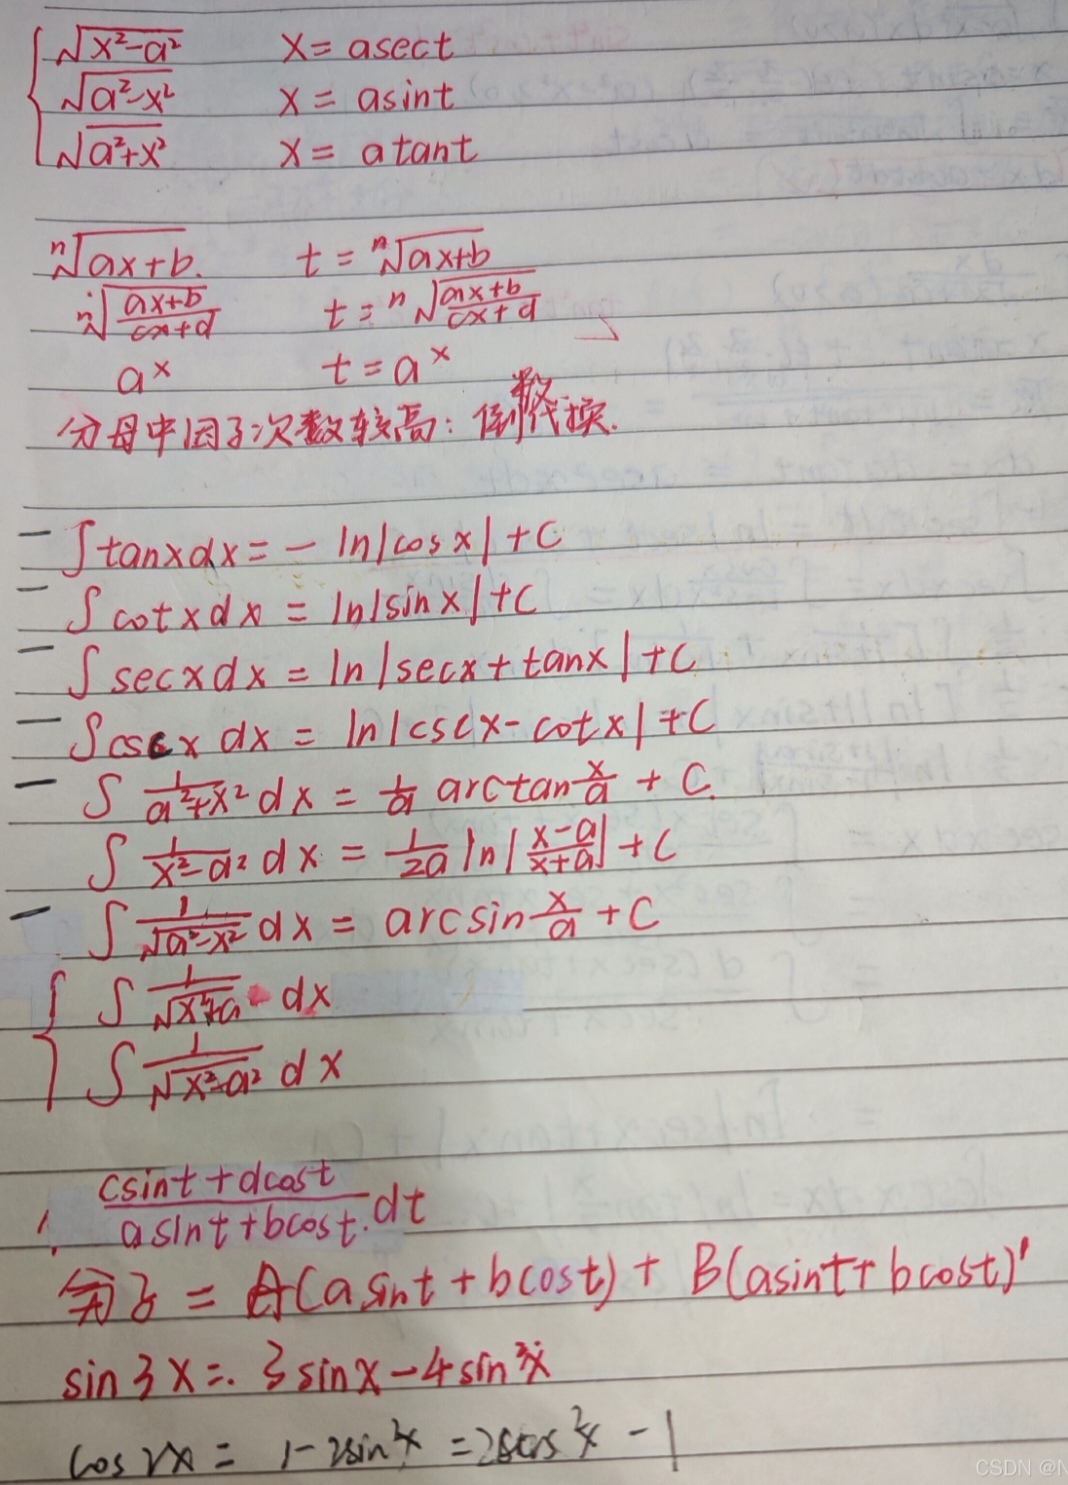 √(x²-a²) x = asect
√(a²-x²) x = asint
√(a²+x²) x = atant
ⁿ√(ax+b). t = ⁿ√(ax+b)
ⁿ√((ax+b)/(cx+d)) t = ⁿ√((ax+b)/(cx+d))
aˣ t = aˣ
分母中因子次数较高: 倒数代换.
- ∫tanxdx = - ln|cosx| + C
- ∫cotxdx = ln|sinx| + C
- ∫secxdx = ln|secx + tanx| + C
- ∫cscx dx = ln|cscx - cotx| + C
- ∫ 1/(a²+x²) dx = 1/a arctan x/a + C.
∫ 1/(x²-a²) dx = 1/2a ln|(x-a)/(x+a)| + C
- ∫ 1/√(a²-x²) dx = arcsin x/a + C
∫ 1/√(x²+a) dx
∫ 1/√(x²-a²) dx
(csint + dcost)/(asint + bcost) dt
= A(asint + bcost) + B(asint + bcost)'
sin3x = 3sinx - 4sin³x
cos2x = 1 - 2sin²x = 2cos²x - 1
CSDN @N